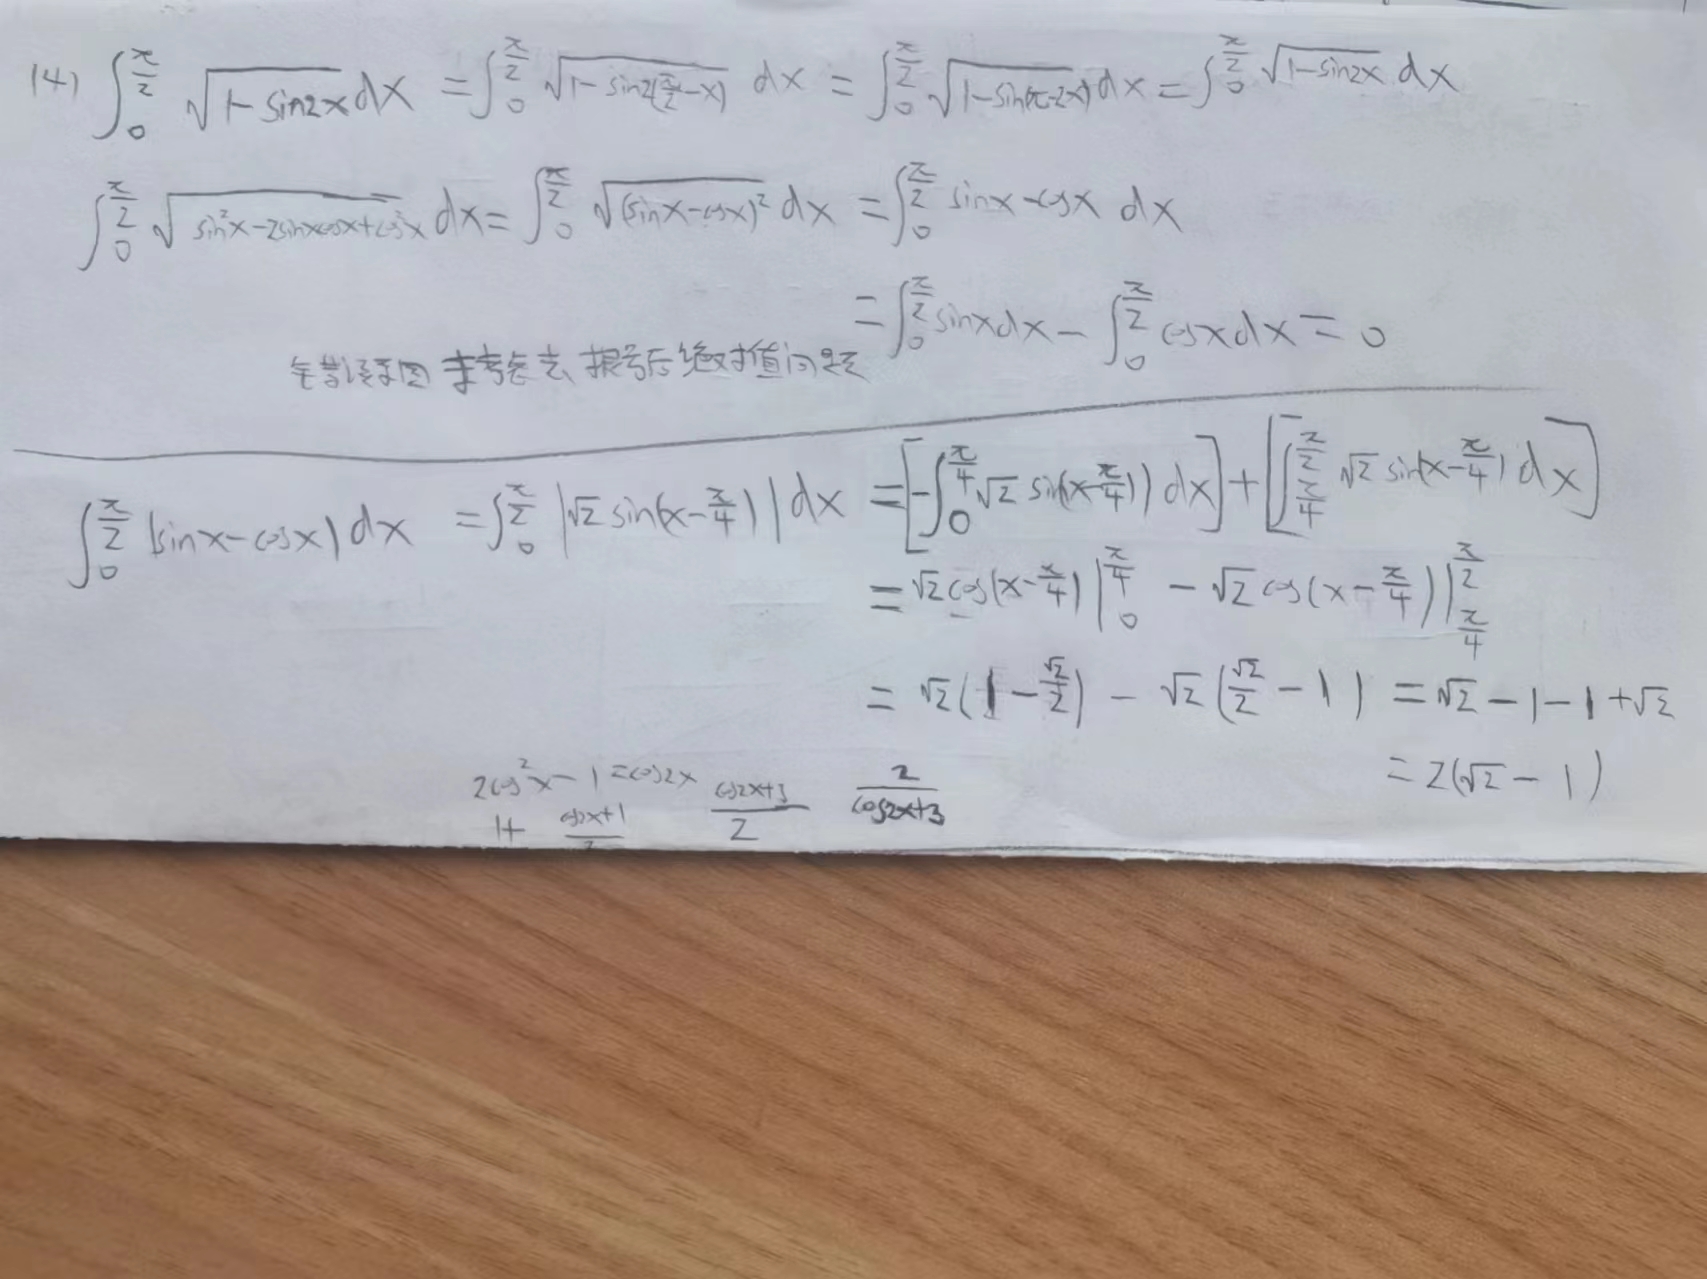 (4) ∫₀^{π/2} √(1-sin2x) dx = ∫₀^{π/2} √(1-sin2(π/2-x)) dx = ∫₀^{π/2} √(1-sin(π-2x)) dx = ∫₀^{π/2} √(1-sin2x) dx
∫₀^{π/2} √(sin²x-2sinxcosx+cos²x) dx = ∫₀^{π/2} √((sinx-cosx)²) dx = ∫₀^{π/2} sinx-cosx dx
= ∫₀^{π/2} sinxdx - ∫₀^{π/2} cosxdx = 0
错误原因 未考虑去根号后绝对值问题
∫₀^{π/2} |sinx-cosx| dx = ∫₀^{π/2} |√2 sin(x-π/4)| dx = [-∫₀^{π/4} √2 sin(x-π/4)) dx] + [∫_{π/4}^{π/2} √2 sin(x-π/4) dx]
= √2 cos(x-π/4) |₀^{π/4} - √2 cos(x-π/4)) |_{π/4}^{π/2}
= √2(1-√2/2) - √2(√2/2-1) = √2-1-1+√2
= 2(√2-1)
2cos²x-1=cos2x (cos2x+3)/2 2/(cos2x+3)
1+ (cos2x+1)/2